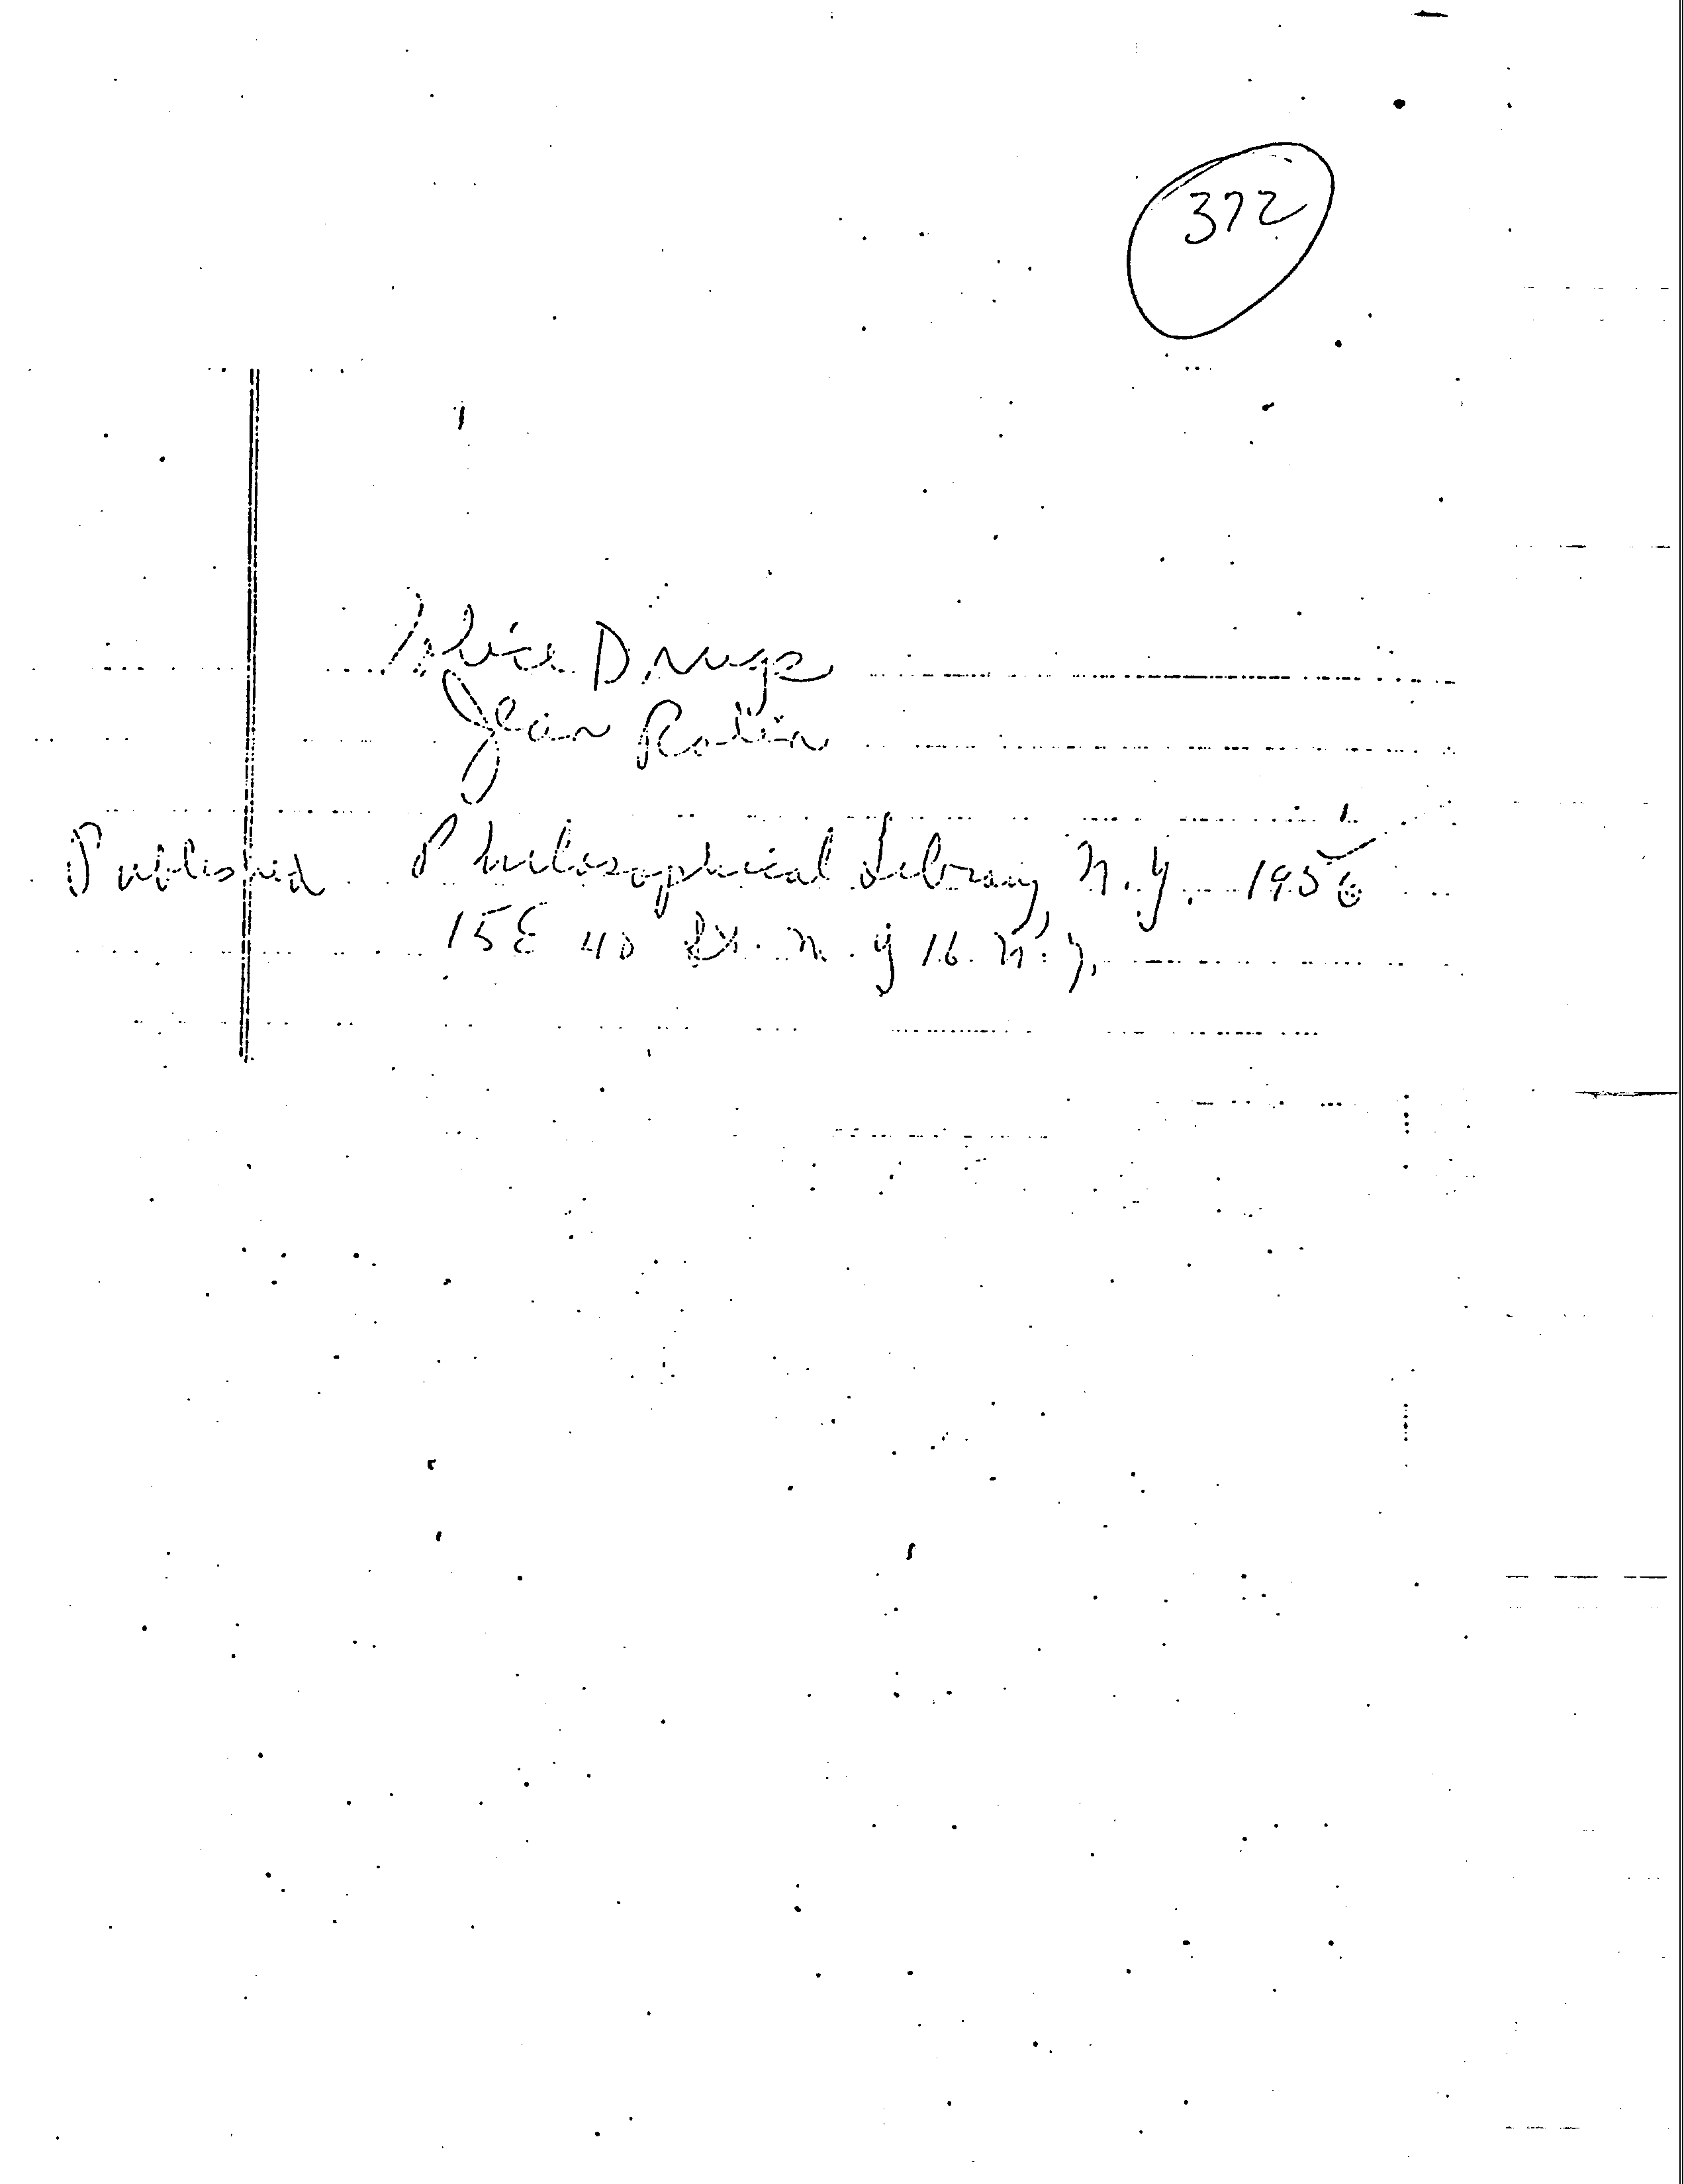 372
Police Drugs
Jean Rolin
Published Philosophical Library, N.Y. 1956
15 E 40 St. N.Y 16. N.Y.